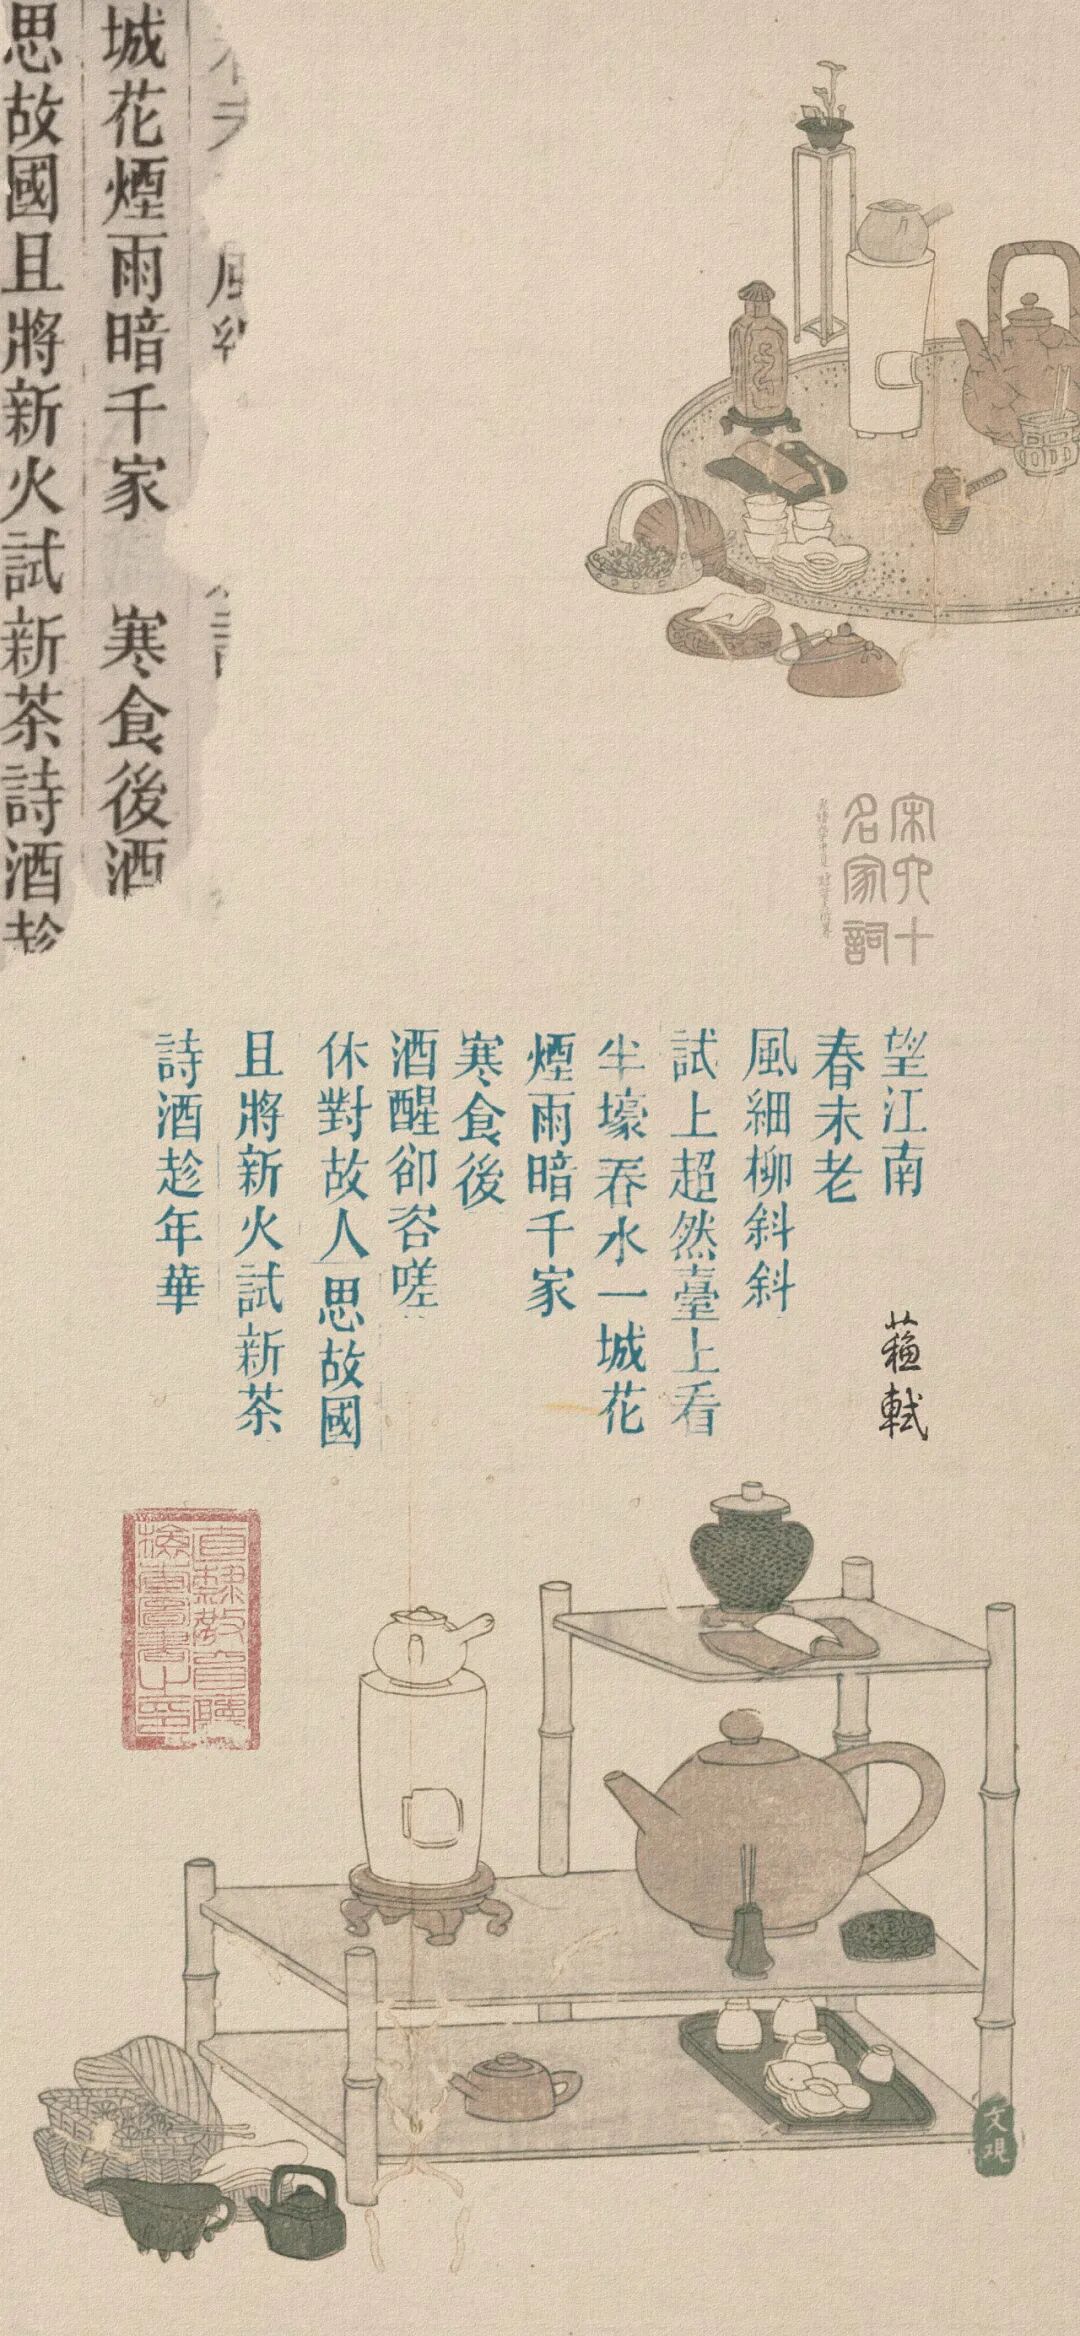 城花煙雨暗千家　寒食後酒
思故國且將新火試新茶詩酒趁
宋六十
名家詞
望江南
蘇軾
春未老
風細柳斜斜
試上超然臺上看
半壕春水一城花
煙雨暗千家
寒食後
酒醒卻咨嗟
休對故人思故國
且將新火試新茶
詩酒趁年華
直隸教育廳
檢定圖書之印
文观